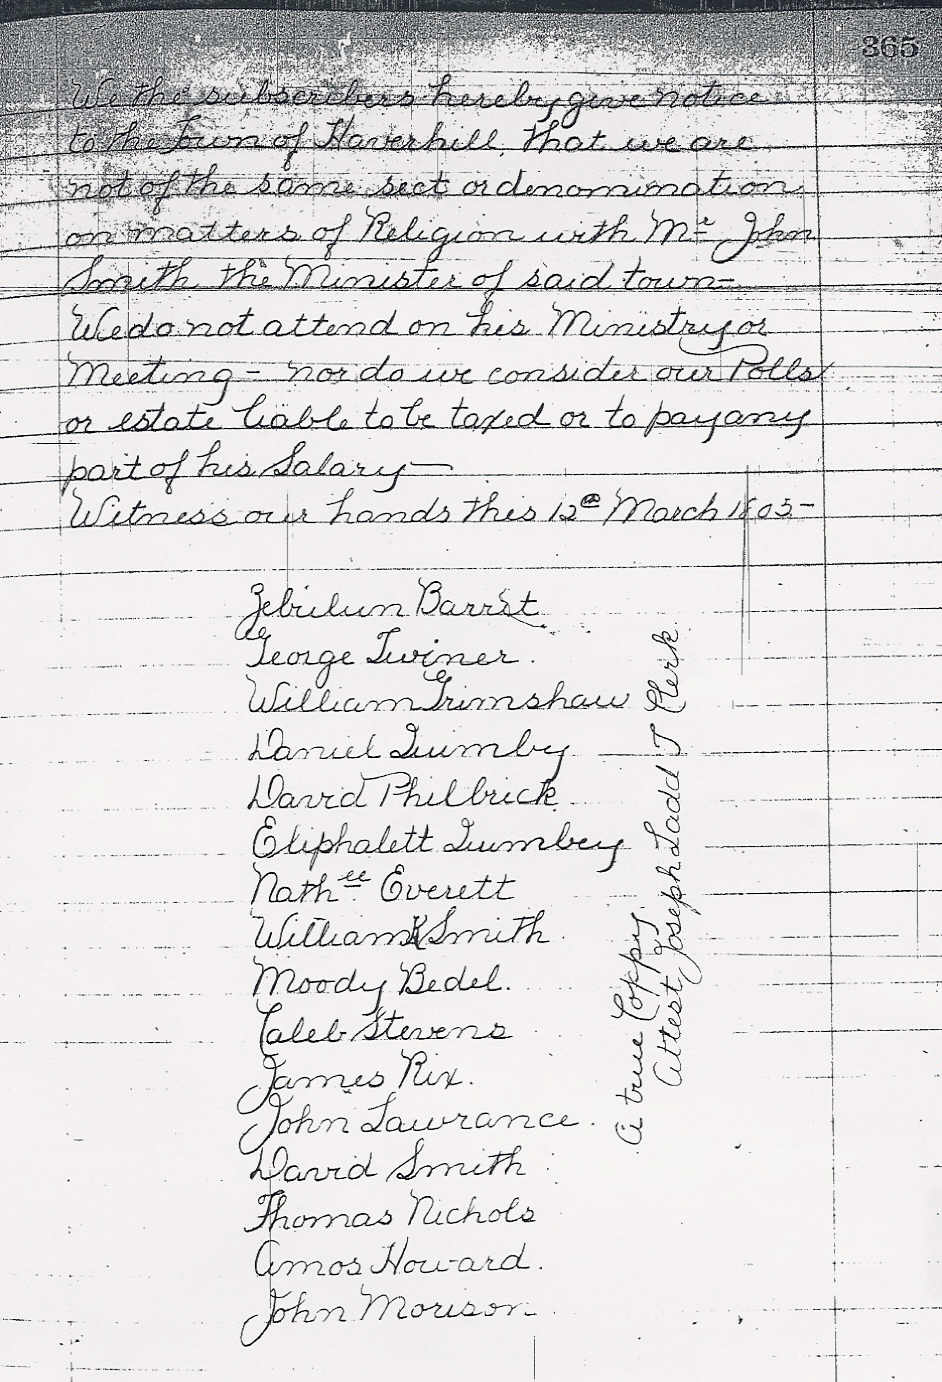 365
We the subscribers hereby give notice
to the Town of Haverhill, that we are
not of the same sect or denomination
on matters of Religion with Mr John
Smith the Minister of said town—
We do not attend on his Ministry or
Meeting— nor do we consider our Polls
or estate liable to be taxed or to pay any
part of his Salary—
Witness our hands this 12th March 1803—
Zebulun Barret
George Twiner.
William Grimshaw
Daniel Quimby
David Philbrick
Eliphalett Quimbey
Nathee Everett
William K Smith
Moody Bedel.
Caleb Stevens
James Rix.
John Lawrance.
David Smith
Thomas Nichols
Amos Howard.
John Morison
A true Coppy.
Attest Joseph Ladd T Clerk